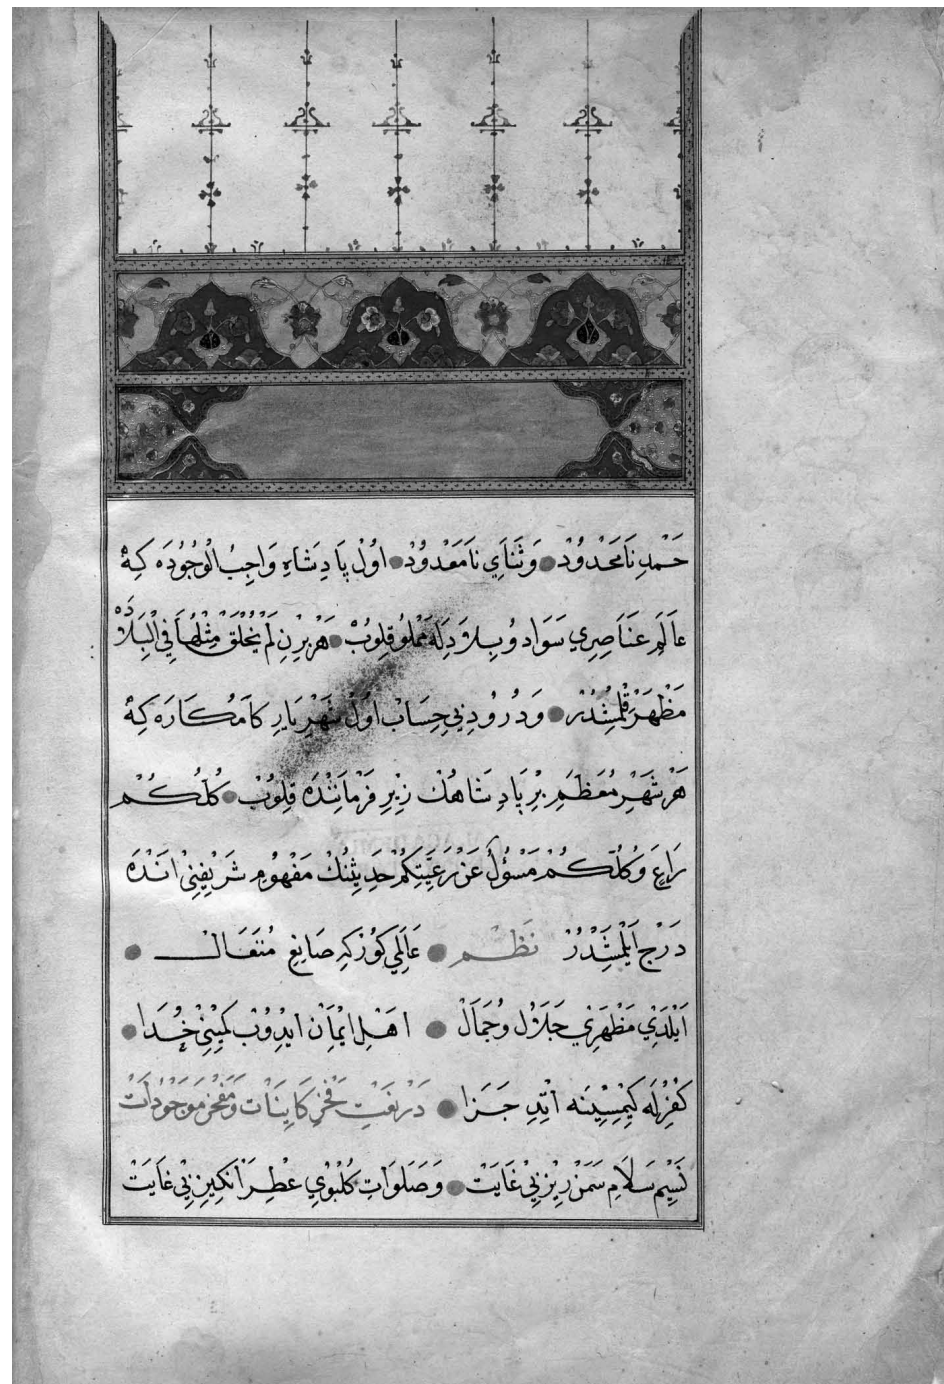 حَمْدِ نَامَحْدُودْ وَثَنَايِ نَامَعْدُودْ اوُلْ پَادِشَاهِ وَاجِبُ الْوُجُودَه كِهْ
عَالَمِ عَنَاصِرِي سَوَاد وُ بِلَادِلَه مَمْلُو قِلوُبْ هَرْ بِرْنِ لَمْ يُخْلَقْ مِثْلُهَا فِي الْبِلَادْ
مَظْهَرْ قِلْمِشْدُرْ وَدُرُودِ بِي حِسَابْ اوُلْ شَهْرِيَارِ كَامْكَارَه كِهْ
هَرْ شَهْرِ مُعَظَّمِ بِرْ پَادِشَاهُكْ زِيرِ فَرْمَانِنْدَه قِلوُبْ كُلُّكُمْ
رَاعٍ وَكُلُّكُمْ مَسْؤُلٌ عَنْ رَعِيَّتِكُمْ حَدِيثِنُكْ مَفْهُومِ شَرِيفِنِي انْدَه
دَرْج ايْلَمِشْدُرْ نَظْم عَالَمِي كوُر كِه صَانِعِ مُتَعَالْ
ايْلَدِي مَظْهَرِي جَلَالْ وُ جَمَالْ اهْلِ ايْمَان ايدُوبْ كِيمِنِي خُدَا
كُفْرِلَه كِيمِسِينَه اتْدِ جَزَا دَرْ نَعْتِ فَخْرِ كَايِنَات وَمَفْخَرِ مَوْجُودَاتْ
نَسِيمِ سَلَامِ سَمَنْ رِيزِ بِي غَايَتْ وَصَلَوَاتِ كُلْبُويِ عِطِرْ انْكِيزِ بِي غَايَتْ